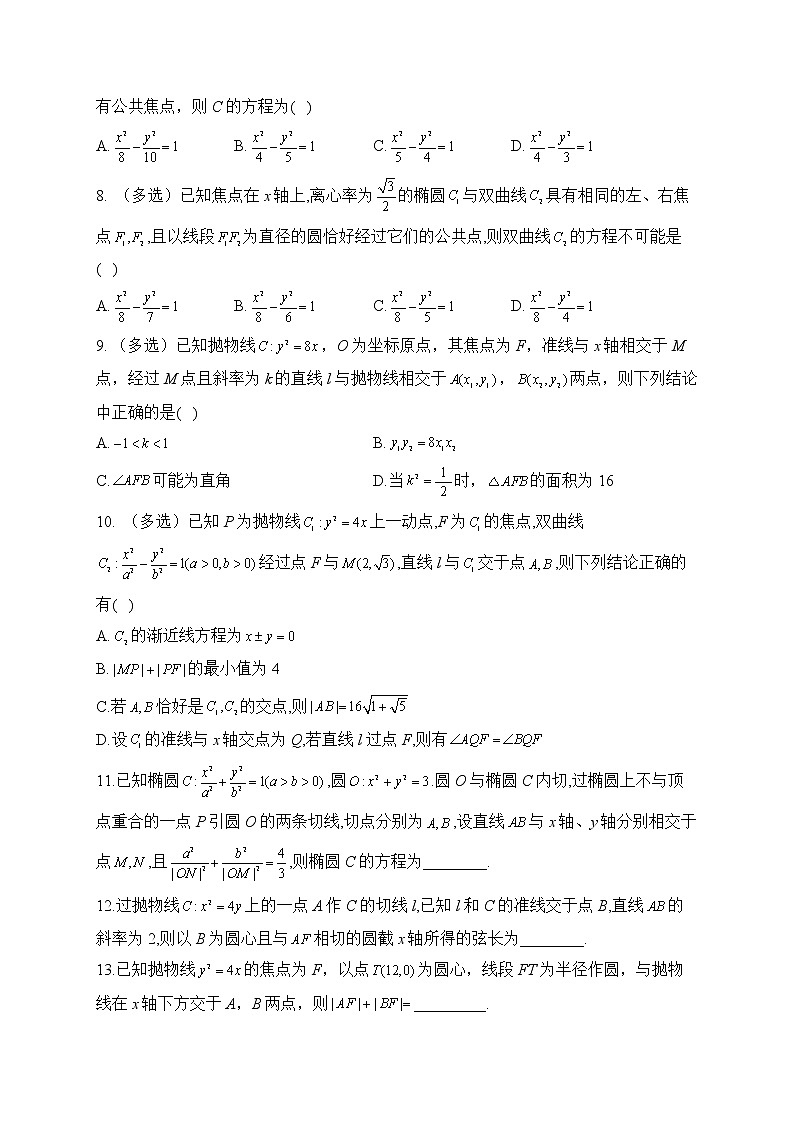 有公共焦点，则 C 的方程为( )
A. x²/8 − y²/10 = 1 B. x²/4 − y²/5 = 1 C. x²/5 − y²/4 = 1 D. x²/4 − y²/3 = 1
8. （多选）已知焦点在 x 轴上,离心率为 √3/2 的椭圆 C₁ 与双曲线 C₂ 具有相同的左、右焦
点 F₁,F₂ ,且以线段 F₁F₂ 为直径的圆恰好经过它们的公共点,则双曲线 C₂ 的方程不可能是
( )
A. x²/8 − y²/7 = 1 B. x²/8 − y²/6 = 1 C. x²/8 − y²/5 = 1 D. x²/8 − y²/4 = 1
9. （多选）已知抛物线 C : y² = 8x ，O 为坐标原点，其焦点为 F，准线与 x 轴相交于 M
点，经过 M 点且斜率为 k 的直线 l 与抛物线相交于 A(x₁,y₁)， B(x₂,y₂) 两点，则下列结论
中正确的是( )
A. −1 < k < 1 B. y₁y₂ = 8x₁x₂
C.∠AFB 可能为直角 D.当 k² = 1/2 时，△AFB 的面积为 16
10. （多选）已知 P 为抛物线 C₁ : y² = 4x 上一动点,F 为 C₁ 的焦点,双曲线
C₂ : x²/a² − y²/b² = 1(a > 0,b > 0) 经过点 F 与 M(2,√3) ,直线 l 与 C₁ 交于点 A,B ,则下列结论正确的
有( )
A. C₂ 的渐近线方程为 x ± y = 0
B. |MP| + |PF| 的最小值为 4
C.若 A,B 恰好是 C₁,C₂ 的交点,则 |AB|= 16√(1+√5)
D.设 C₁ 的准线与 x 轴交点为 Q,若直线 l 过点 F,则有 ∠AQF = ∠BQF
11.已知椭圆 C : x²/a² + y²/b² = 1(a > b > 0) ,圆 O : x² + y² = 3 .圆 O 与椭圆 C 内切,过椭圆上不与顶
点重合的一点 P 引圆 O 的两条切线,切点分别为 A,B ,设直线 AB 与 x 轴、y 轴分别相交于
点 M,N ,且 a²/|ON|² + b²/|OM|² = 4/3 ,则椭圆 C 的方程为________.
12.过抛物线 C : x² = 4y 上的一点 A 作 C 的切线 l,已知 l 和 C 的准线交于点 B,直线 AB 的
斜率为 2,则以 B 为圆心且与 AF 相切的圆截 x 轴所得的弦长为________.
13.已知抛物线 y² = 4x 的焦点为 F，以点 T(12,0) 为圆心，线段 FT 为半径作圆，与抛物
线在 x 轴下方交于 A，B 两点，则 |AF| + |BF|= _________.